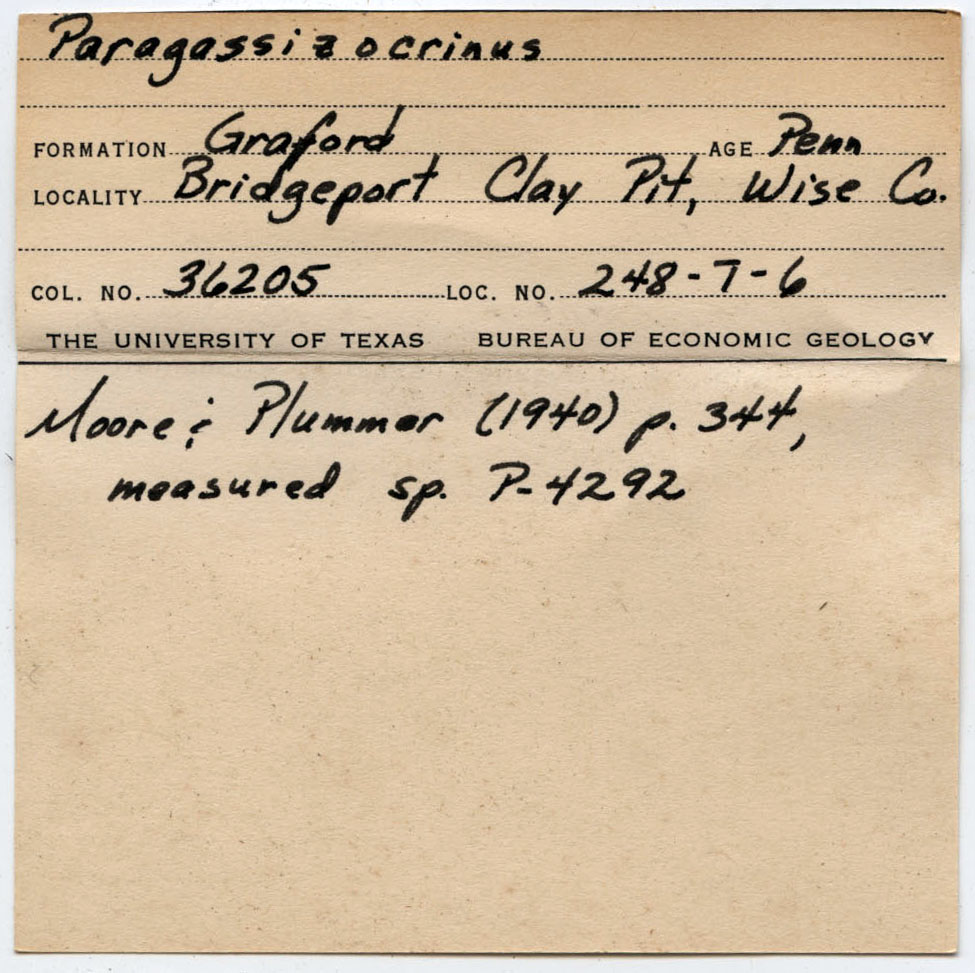 Paragassizocrinus
FORMATION Graford AGE Penn
LOCALITY Bridgeport Clay Pit, Wise Co.
COL. NO. 36205 LOC. NO. 248-7-6
THE UNIVERSITY OF TEXAS BUREAU OF ECONOMIC GEOLOGY
Moore & Plummer (1940) p. 344,
measured sp. P-4292